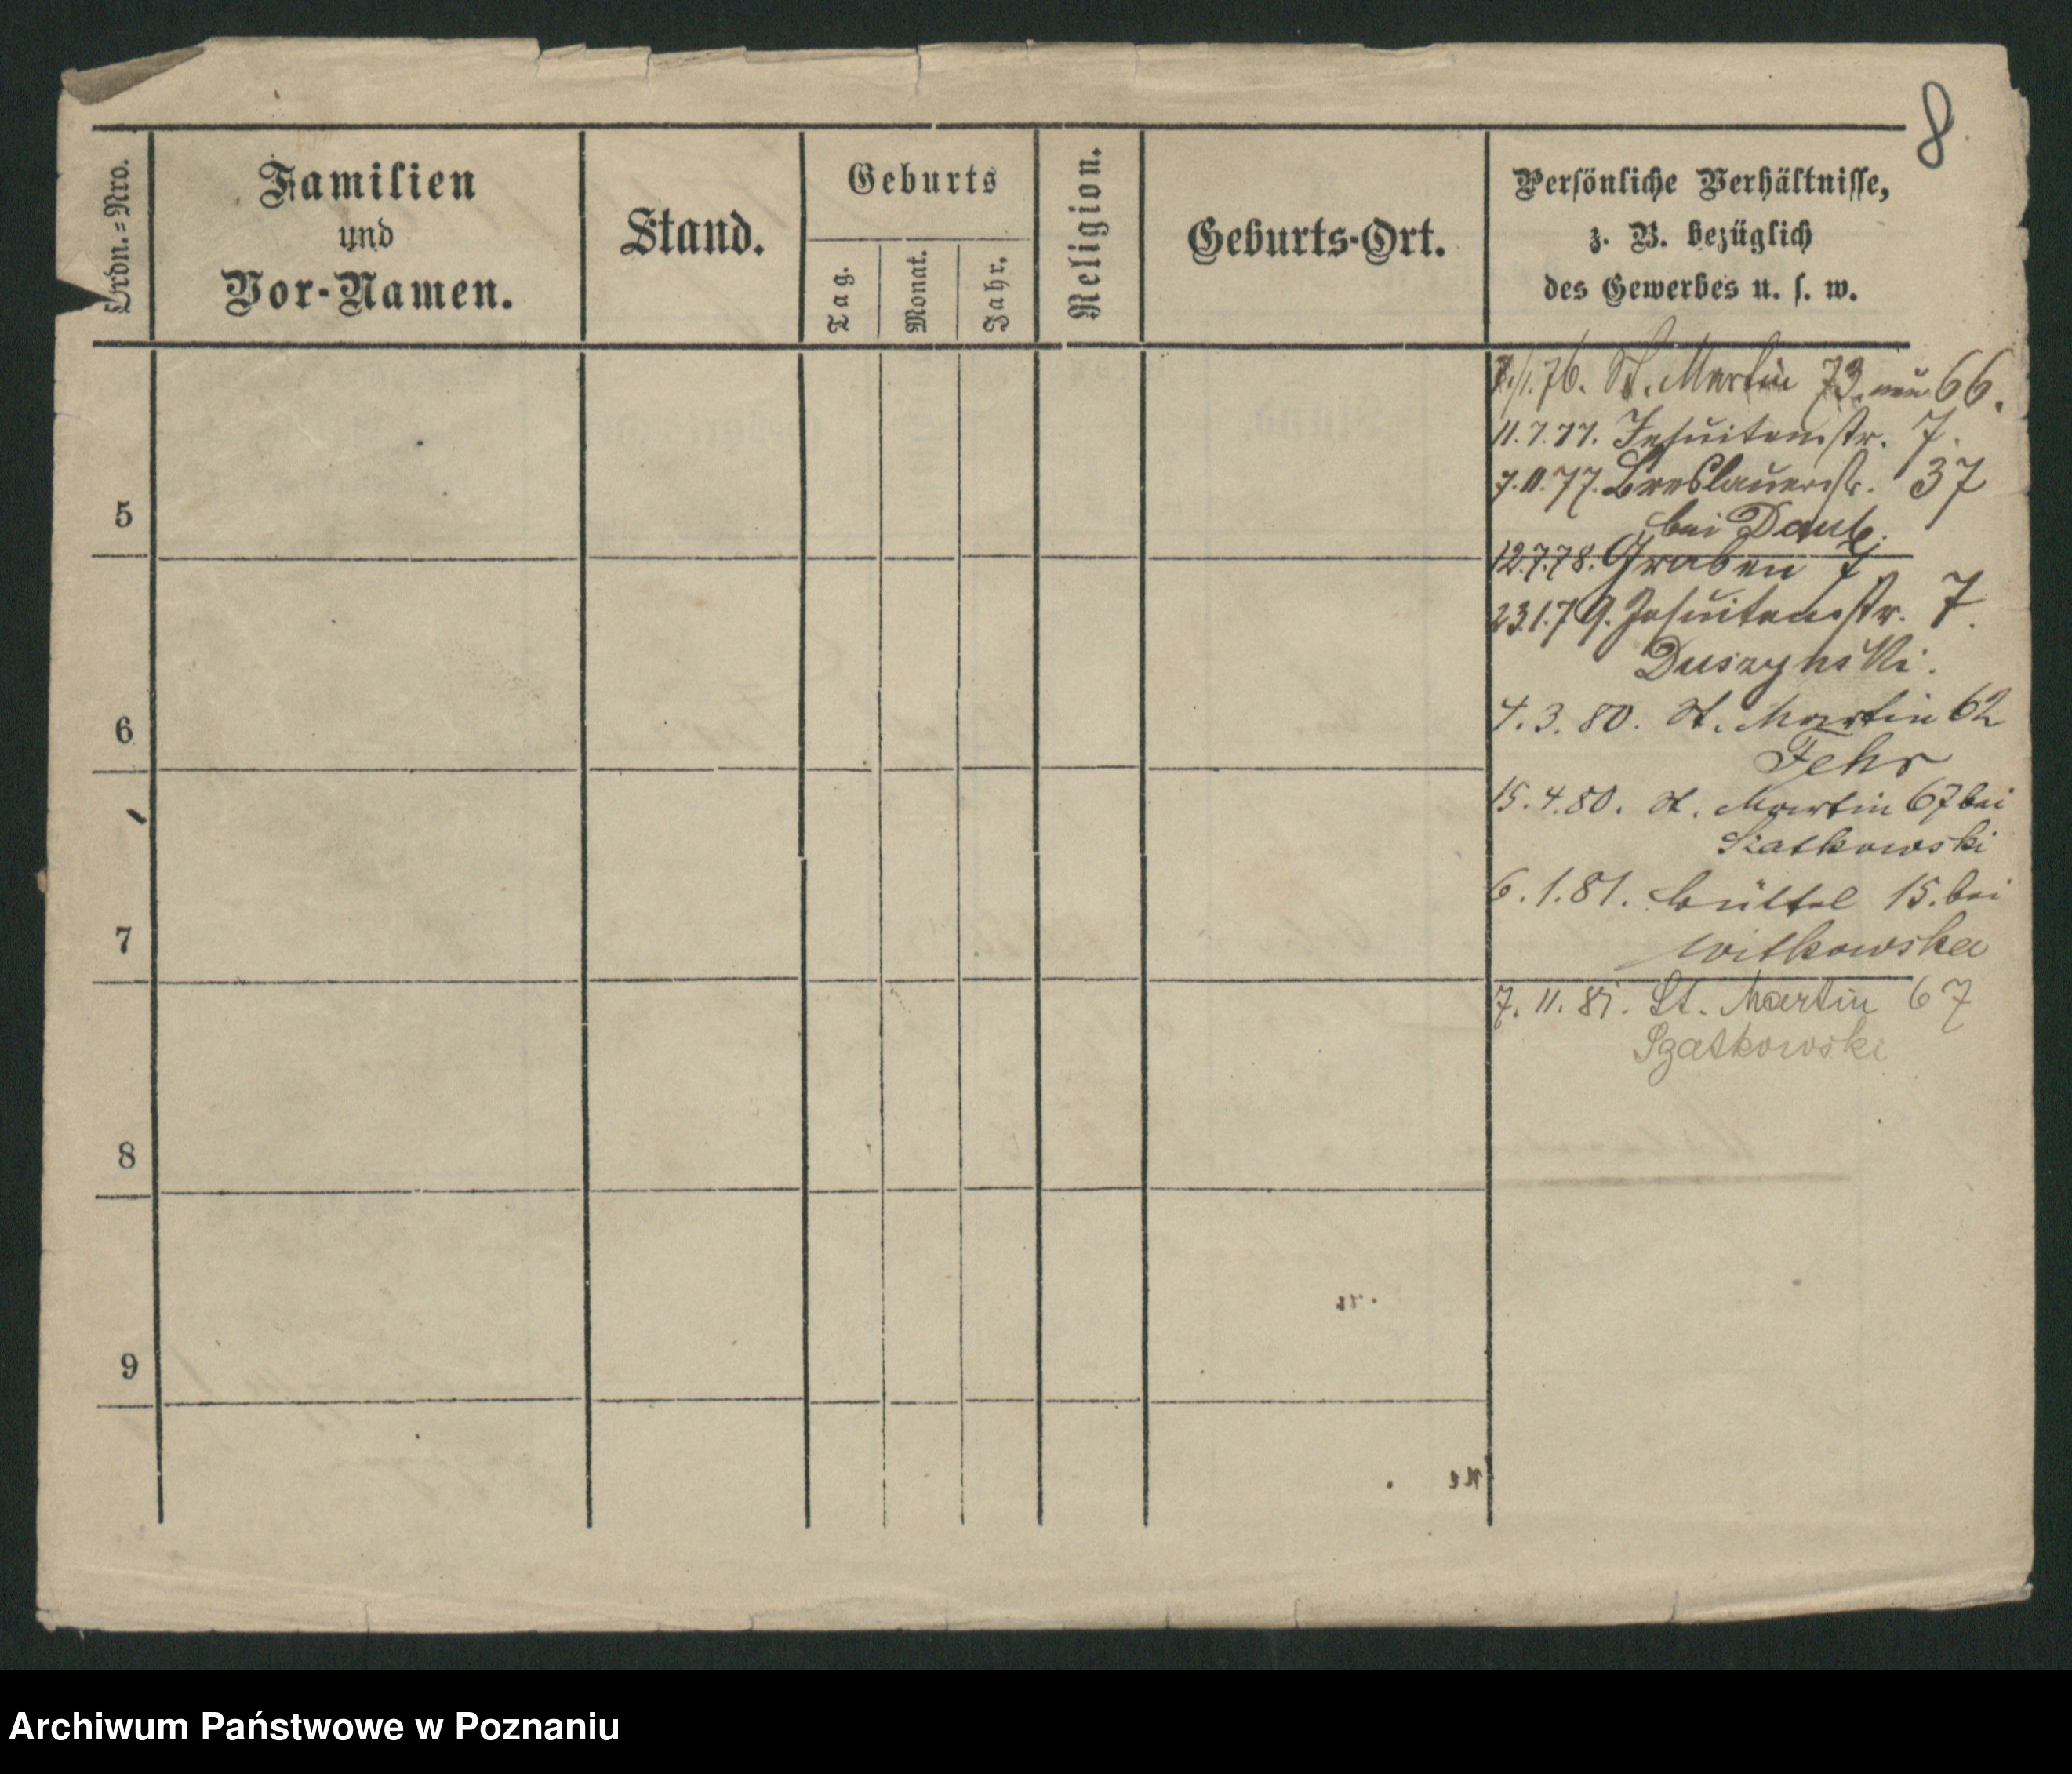 8
Ordn.=Nro.
Familien
und
Vor-Namen.
Stand.
Geburts
Tag.
Monat.
Jahr.
Religion.
Geburts-Ort.
Persönliche Verhältnisse,
z. B. bezüglich
des Gewerbes u. s. w.
7./1.76. St. Martin 73. neu 66.
11.7.77. Jesuitenstr. 7.
7.11.77. Breslauerstr. 37
bei Daub.
12.7.78. Graben 7
23.1.79. Jesuitenstr. 7.
Duszynski.
4.3.80. St. Martin 62
Fehr
15.4.80. St. Martin 67 bei
Szatkowski
6.1.81. Büttel 15. bei
Witkowska
7.11.81. St. Martin 67
Szatkowski
5
6
7
8
9
Archiwum Państwowe w Poznaniu